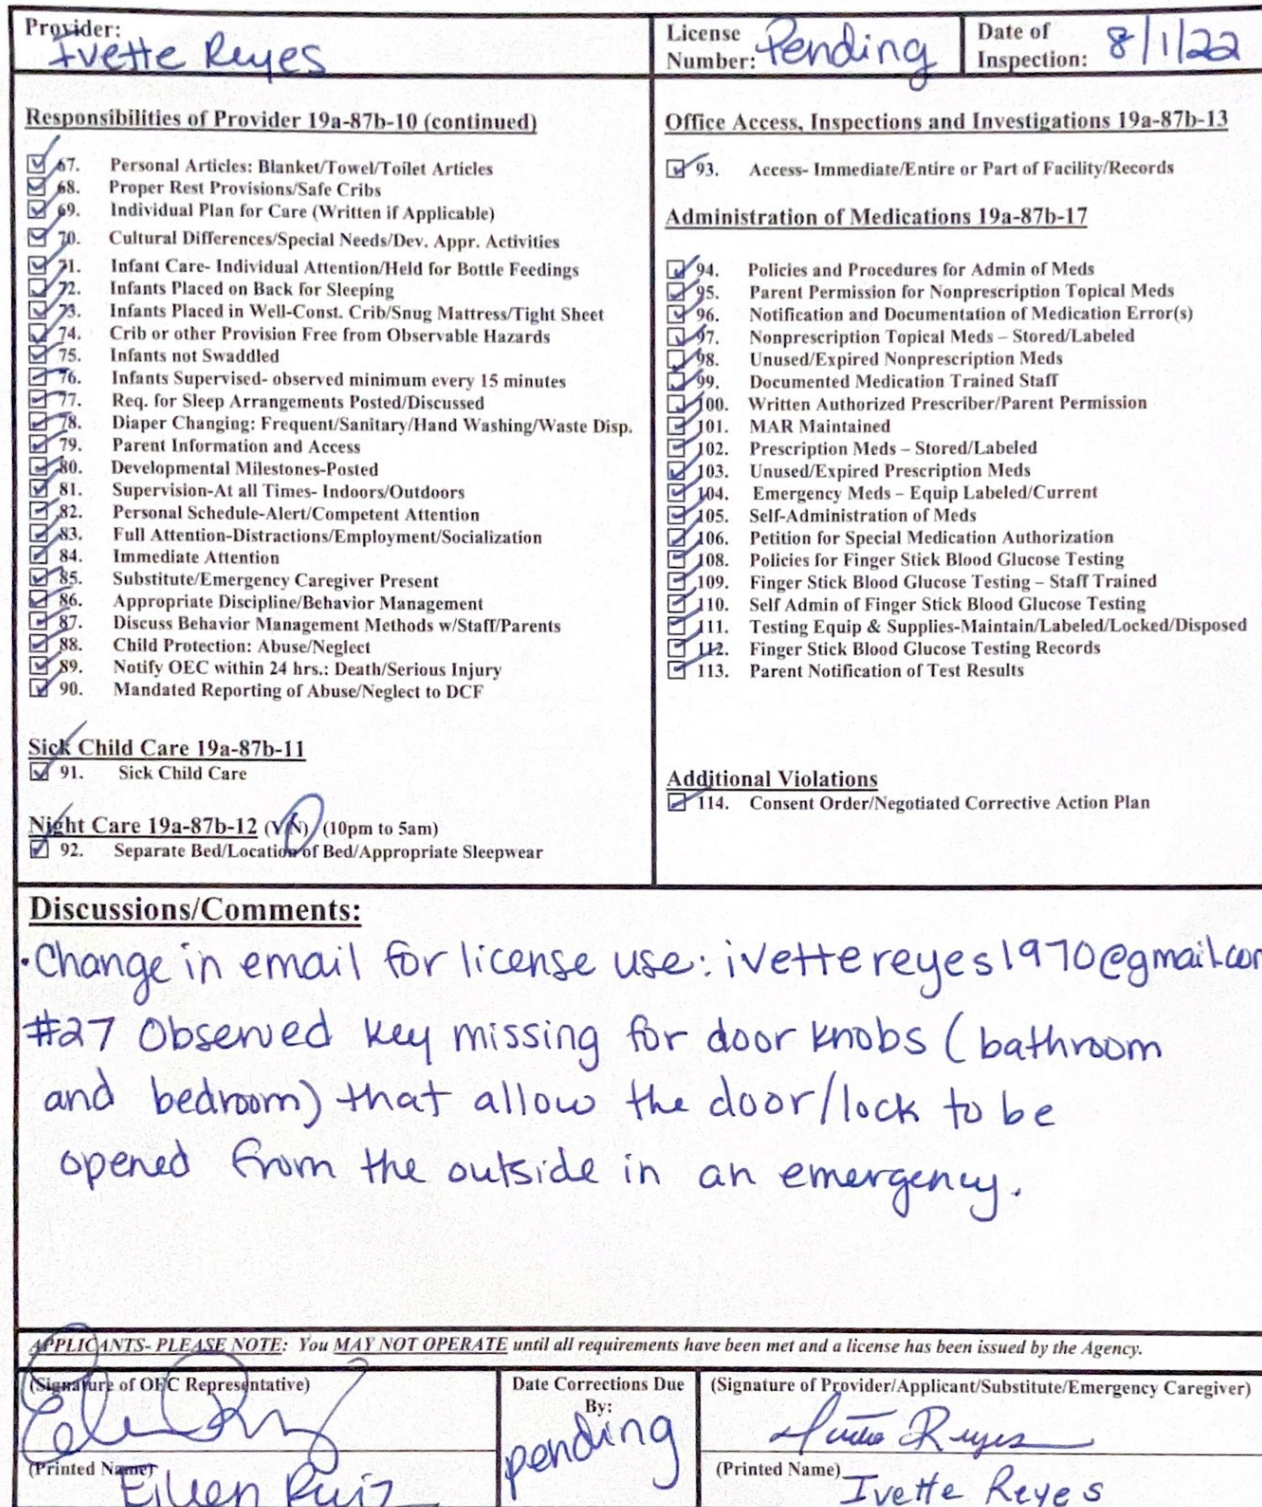 Provider: Ivette Reyes
License Number: Pending
Date of Inspection: 8/1/22
Responsibilities of Provider 19a-87b-10 (continued)
67. Personal Articles: Blanket/Towel/Toilet Articles
68. Proper Rest Provisions/Safe Cribs
69. Individual Plan for Care (Written if Applicable)
70. Cultural Differences/Special Needs/Dev. Appr. Activities
71. Infant Care- Individual Attention/Held for Bottle Feedings
72. Infants Placed on Back for Sleeping
73. Infants Placed in Well-Const. Crib/Snug Mattress/Tight Sheet
74. Crib or other Provision Free from Observable Hazards
75. Infants not Swaddled
76. Infants Supervised- observed minimum every 15 minutes
77. Req. for Sleep Arrangements Posted/Discussed
78. Diaper Changing: Frequent/Sanitary/Hand Washing/Waste Disp.
79. Parent Information and Access
80. Developmental Milestones-Posted
81. Supervision-At all Times- Indoors/Outdoors
82. Personal Schedule-Alert/Competent Attention
83. Full Attention-Distractions/Employment/Socialization
84. Immediate Attention
85. Substitute/Emergency Caregiver Present
86. Appropriate Discipline/Behavior Management
87. Discuss Behavior Management Methods w/Staff/Parents
88. Child Protection: Abuse/Neglect
89. Notify OEC within 24 hrs.: Death/Serious Injury
90. Mandated Reporting of Abuse/Neglect to DCF
Sick Child Care 19a-87b-11
91. Sick Child Care
Night Care 19a-87b-12 (Y/N) (10pm to 5am)
92. Separate Bed/Location of Bed/Appropriate Sleepwear
Office Access, Inspections and Investigations 19a-87b-13
93. Access- Immediate/Entire or Part of Facility/Records
Administration of Medications 19a-87b-17
94. Policies and Procedures for Admin of Meds
95. Parent Permission for Nonprescription Topical Meds
96. Notification and Documentation of Medication Error(s)
97. Nonprescription Topical Meds – Stored/Labeled
98. Unused/Expired Nonprescription Meds
99. Documented Medication Trained Staff
100. Written Authorized Prescriber/Parent Permission
101. MAR Maintained
102. Prescription Meds – Stored/Labeled
103. Unused/Expired Prescription Meds
104. Emergency Meds – Equip Labeled/Current
105. Self-Administration of Meds
106. Petition for Special Medication Authorization
108. Policies for Finger Stick Blood Glucose Testing
109. Finger Stick Blood Glucose Testing – Staff Trained
110. Self Admin of Finger Stick Blood Glucose Testing
111. Testing Equip & Supplies-Maintain/Labeled/Locked/Disposed
112. Finger Stick Blood Glucose Testing Records
113. Parent Notification of Test Results
Additional Violations
114. Consent Order/Negotiated Corrective Action Plan
Discussions/Comments:
·Change in email for license use: ivettereyes1970@gmail.com
#27 Observed key missing for door knobs (bathroom
and bedroom) that allow the door/lock to be
opened from the outside in an emergency.
APPLICANTS- PLEASE NOTE: You MAY NOT OPERATE until all requirements have been met and a license has been issued by the Agency.
(Signature of OEC Representative)
(Printed Name) Eileen Ruiz
Date Corrections Due
By:
pending
(Signature of Provider/Applicant/Substitute/Emergency Caregiver)
Ivette Reyes
(Printed Name) Ivette Reyes